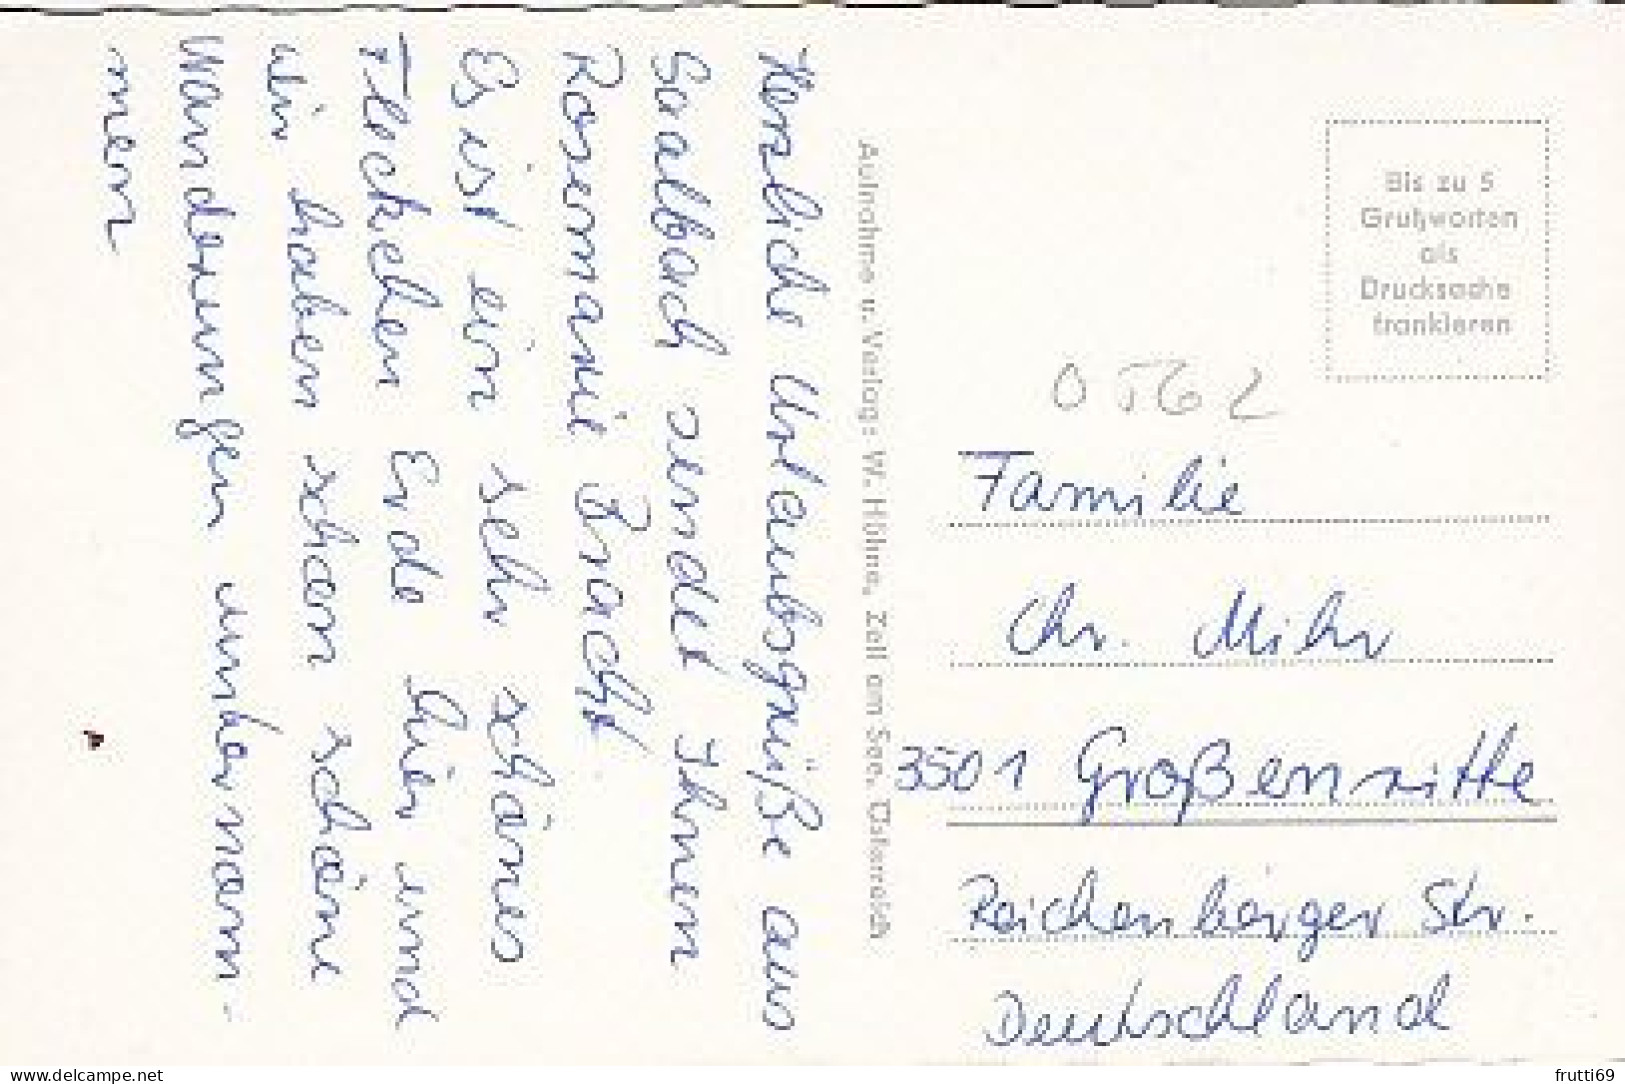 Herzliche Urlaubsgrüße aus
Saalbach sendet Ihnen
Rosemarie Bracht
Es ist ein sehr schönes
Fleckchen Erde hier und
wir haben schon schöne
Wanderungen unternom-
men
Aufnahme u. Verlag: W. Höhne, Zell am See, Österreich
Bis zu 5
Grußworten
als
Drucksache
frankieren
0562
Familie
Chr. Mihr
3501 Großenritte
Reichenberger Str.
Deutschland
www.delcampe.net
frutti69